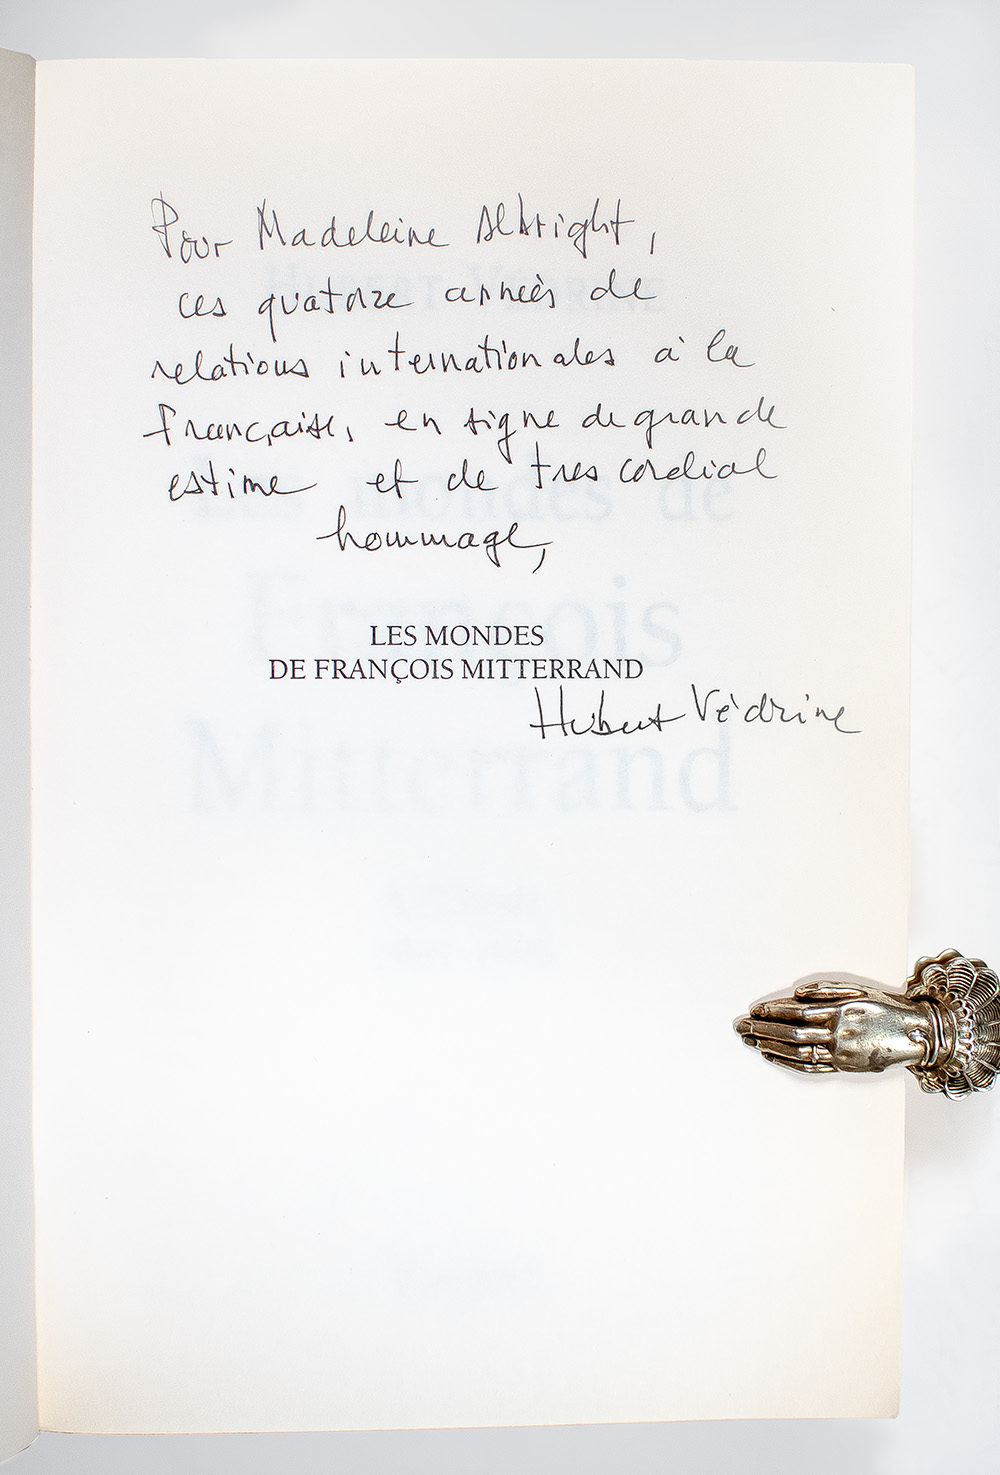 Pour Madeleine Albright,
ces quatorze années de
relations internationales à la
française, en signe de grande
estime et de tres cordial
hommage,
LES MONDES
DE FRANÇOIS MITTERRAND
Hubert Védrine